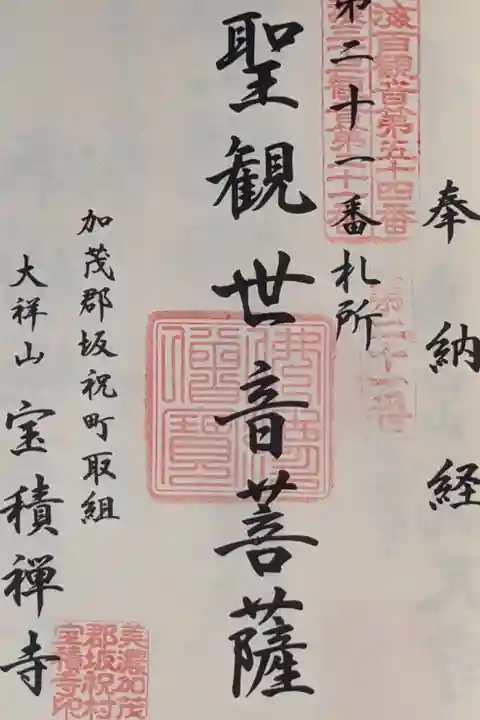 奉納経
海百観音第五十四番
第二十一番札所
聖観世音菩薩
佛法僧寳
加茂郡坂祝町取組
大祥山 宝積禅寺
美濃加茂
郡坂祝村
宝積寺印